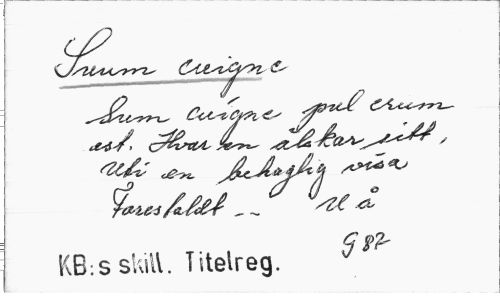 Suum cuigne
Suum cuigne pulcrum
est. Hvar en älskar sitt,
Uti en behaglig visa
Forestaldt -- U å
G 87
KB:s skill. Titelreg.